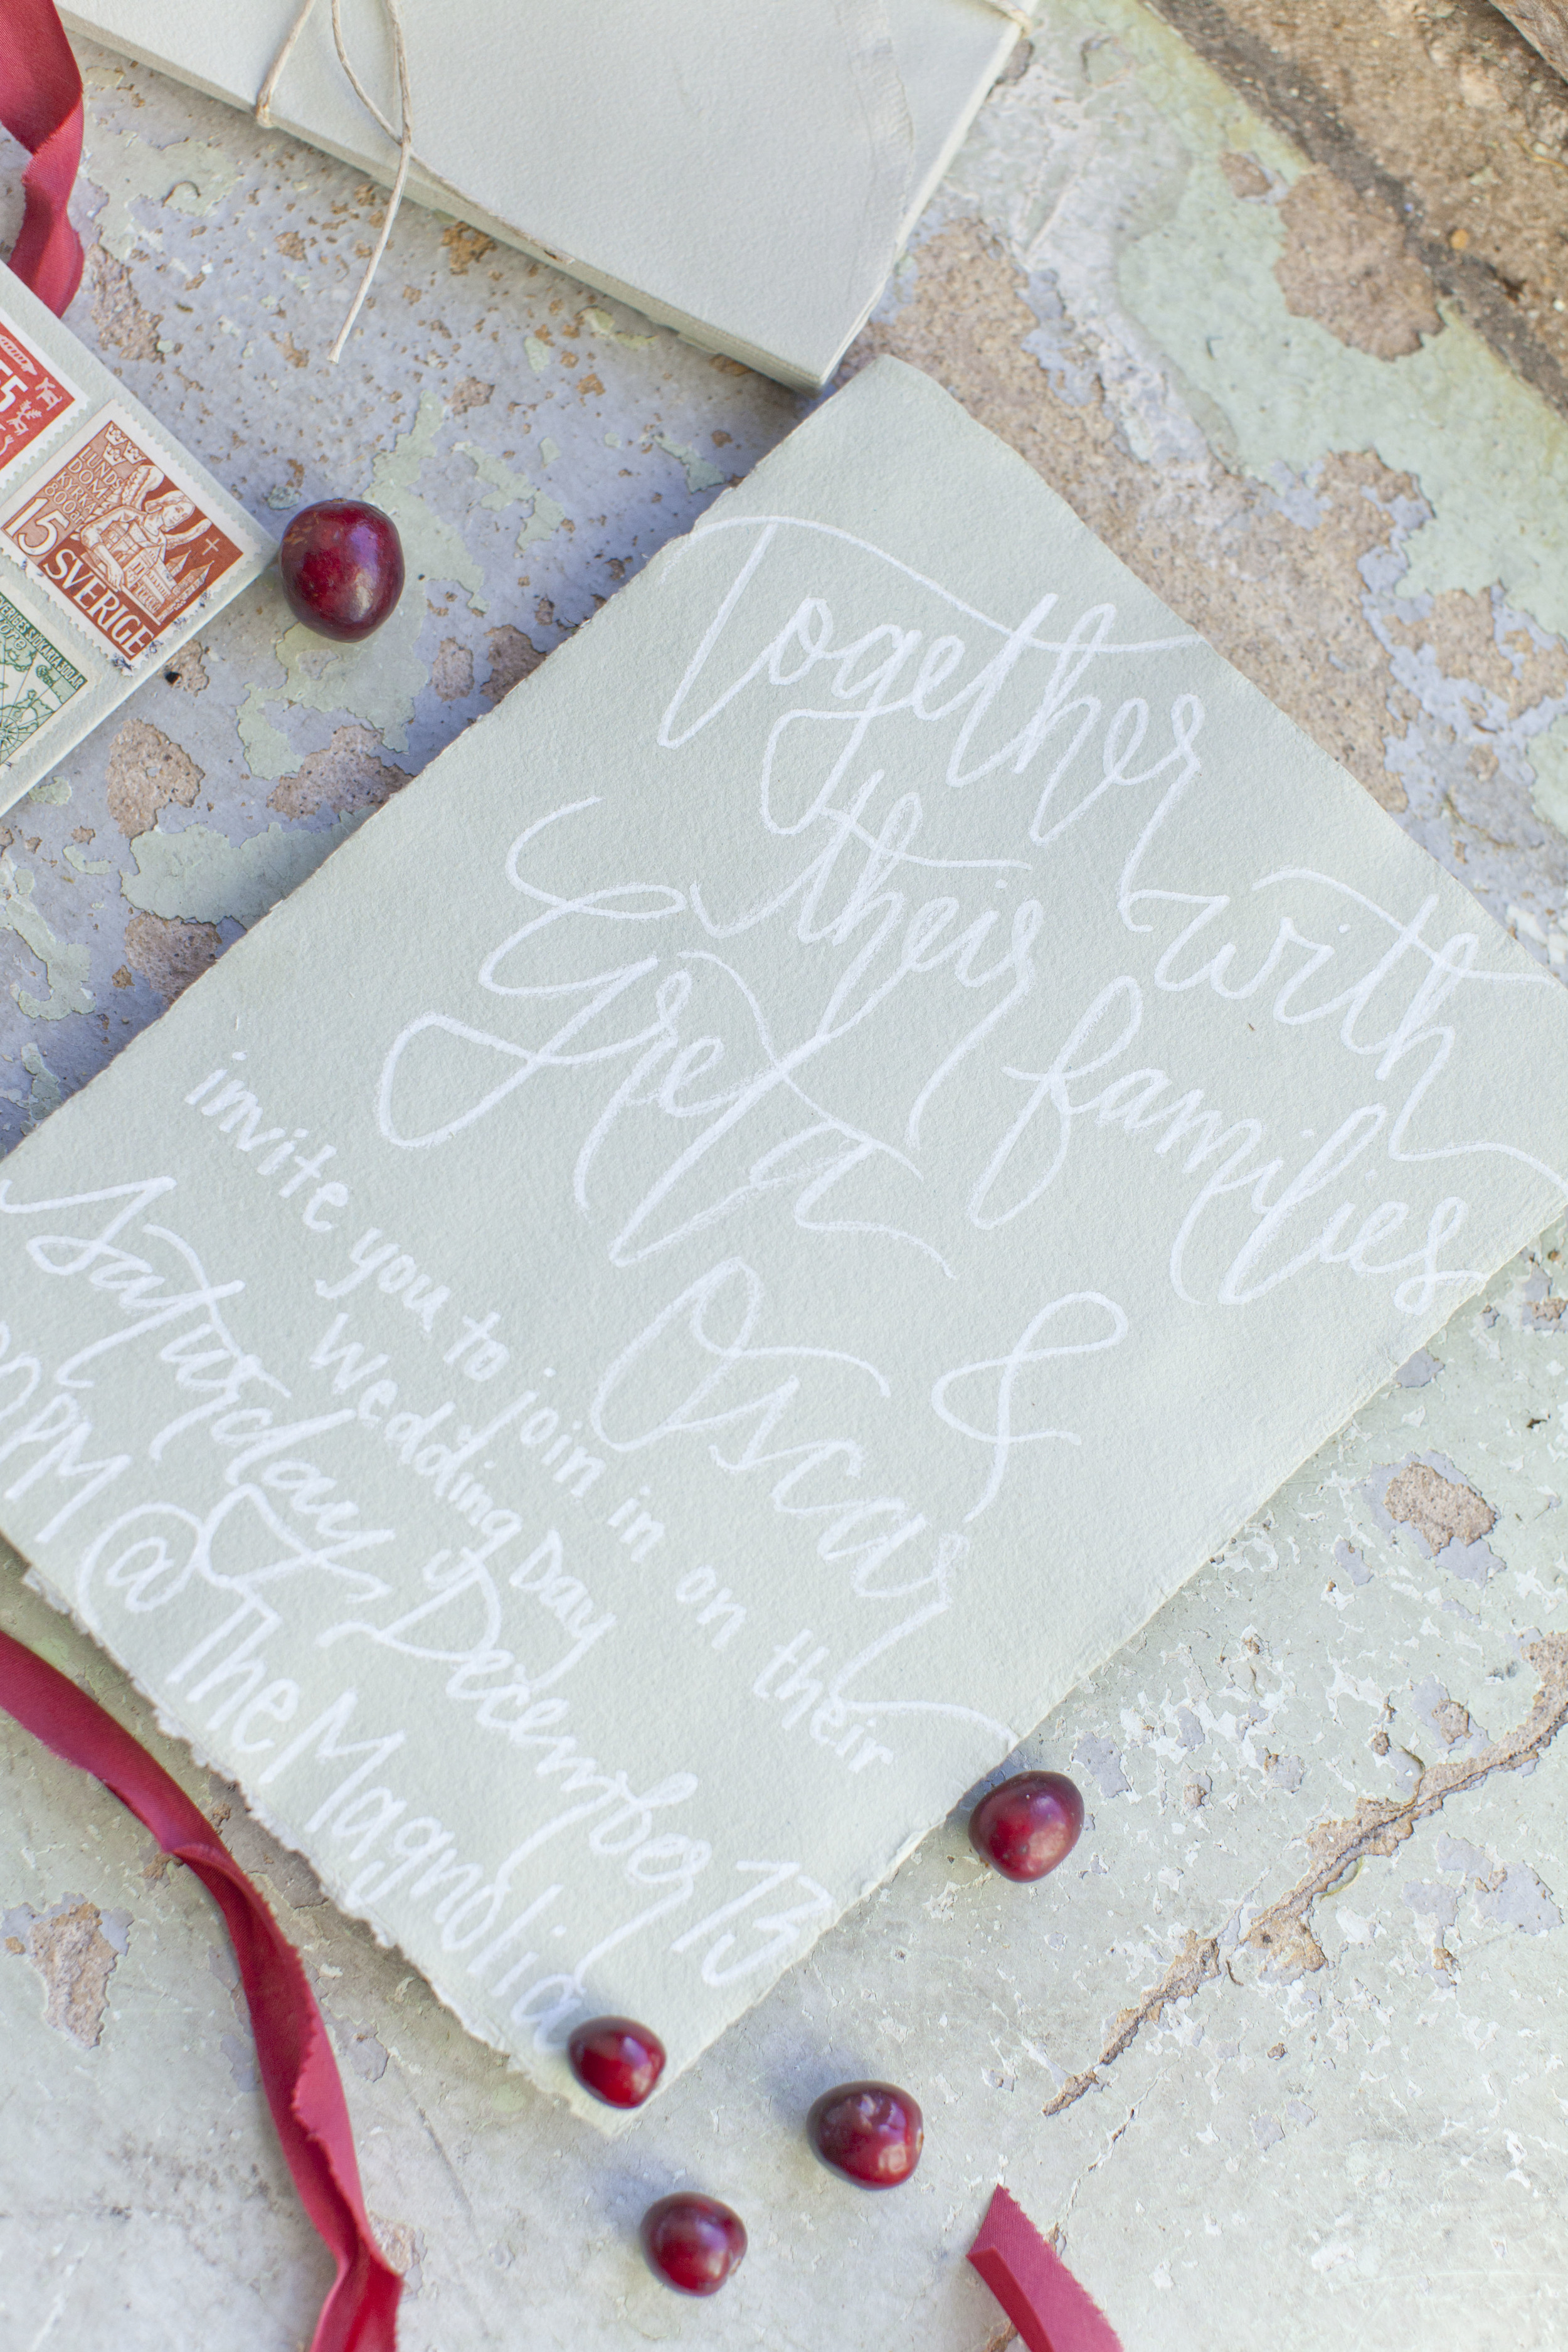 Together with
their families
Greta
& Oscar
invite you to join in on their
Wedding Day
Saturday December 13
PM @ The Magnolia
LUNDS
DOM
KYRKA
800 år
15
SVERIGE
55